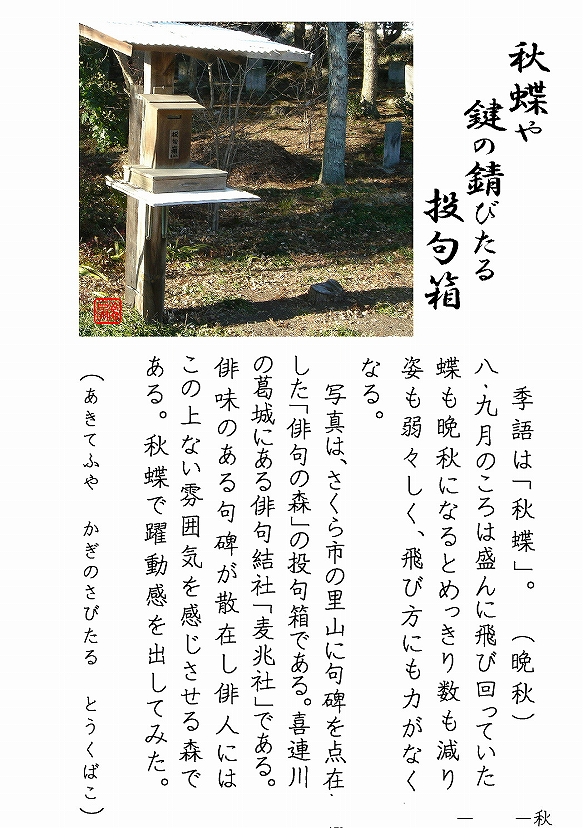 秋蝶や
鍵の錆びたる
投句箱
季語は「秋蝶」。　（晩秋）
八・九月のころは盛んに飛び回っていた
蝶も晩秋になるとめっきり数も減り
姿も弱々しく、飛び方にも力がなく
なる。
写真は、さくら市の里山に句碑を点在
した「俳句の森」の投句箱である。喜連川
の葛城にある俳句結社「麦兆社」である。
俳味のある句碑が散在し俳人には
この上ない雰囲気を感じさせる森で
ある。秋蝶で躍動感を出してみた。
（あきてふや　かぎのさびたる　とうくばこ）
投句箱
―　　―秋